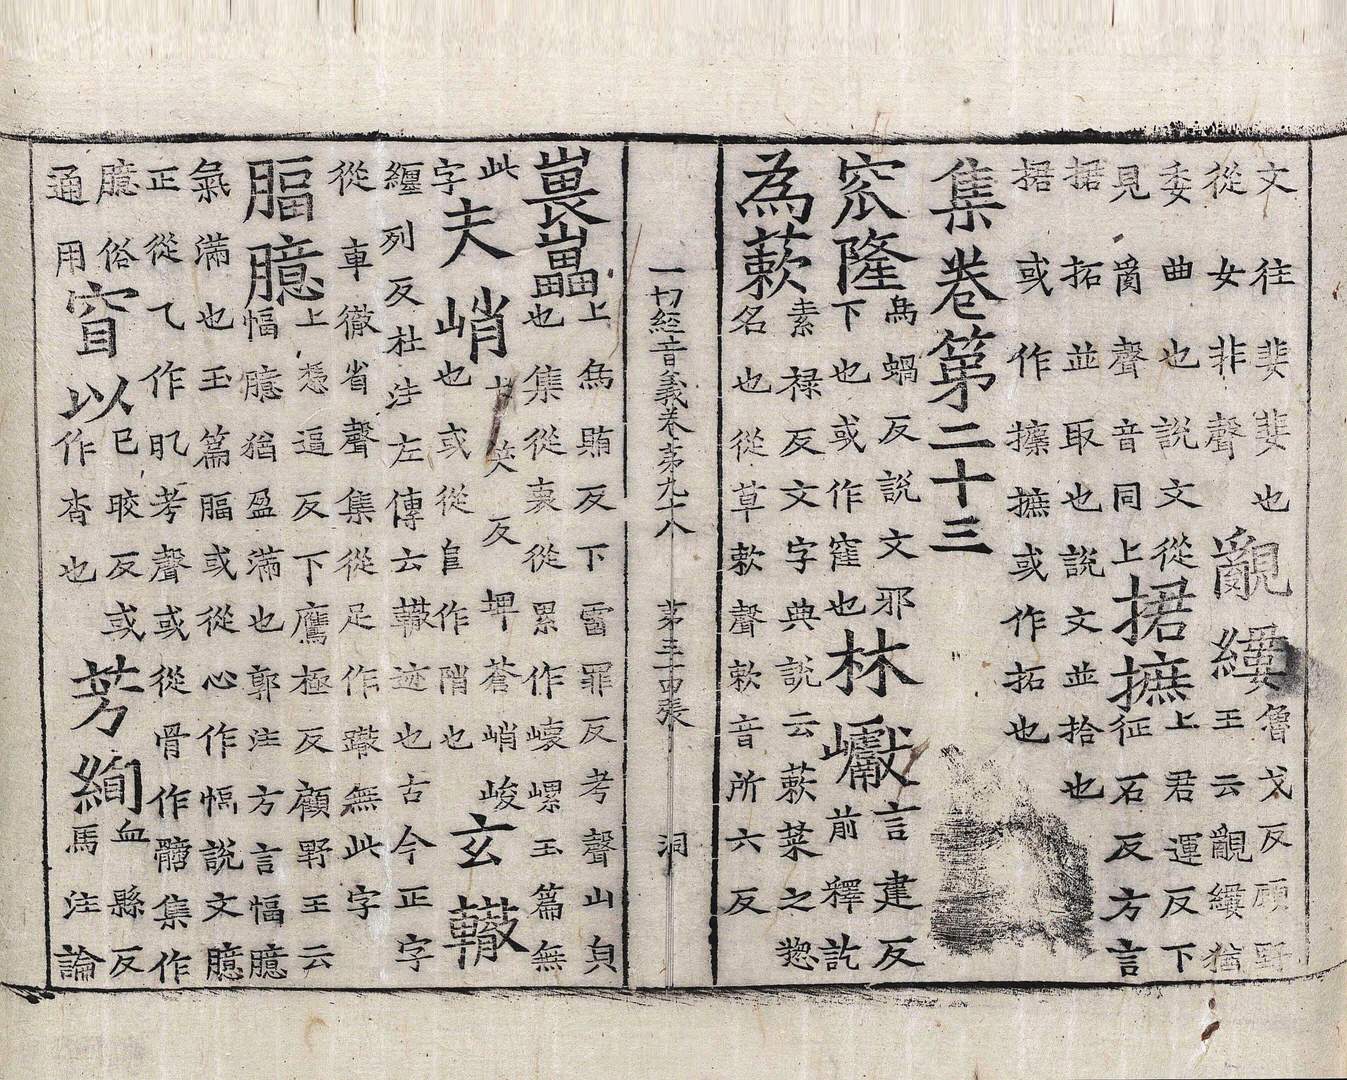 文往婓婓也從女非聲覶縷魯戈反顧野王云覶縷猶
委曲也說文從見𤔔聲音同上捃摭上君運反下征石反方言
捃拓並取也說文並拾也捃或作攈摭或作拓也
集卷第二十三
窊隆烏蝸反說文邪下也或作窪也林巘言建反前釋訖
為蔌素禄反文字典說云蔌菜之惣名也從草欶聲欶音所六反
一切經音義卷苐九十八 苐三十四張 洞
嵔㠥上烏賄反下雷罪反考聲山㒵也集從裹從累作㠢嵺玉篇無
此字夫峭七笑反埤蒼峭峻也或從𨸏作陗也玄轍
纏列反杜注左傳云轍迹也古今正字從車徹省聲集從足作躐無此字
腷臆上憑逼反下鷹極反顧野王云愊臆猶盈滿也郭注方言愊臆
氣滿也玉篇腷或從心作愊說文臆正從乁作肊考聲或從骨作髓集作
臆俗通用窅以已咬反或作杳也芳絢血縣反馬注論